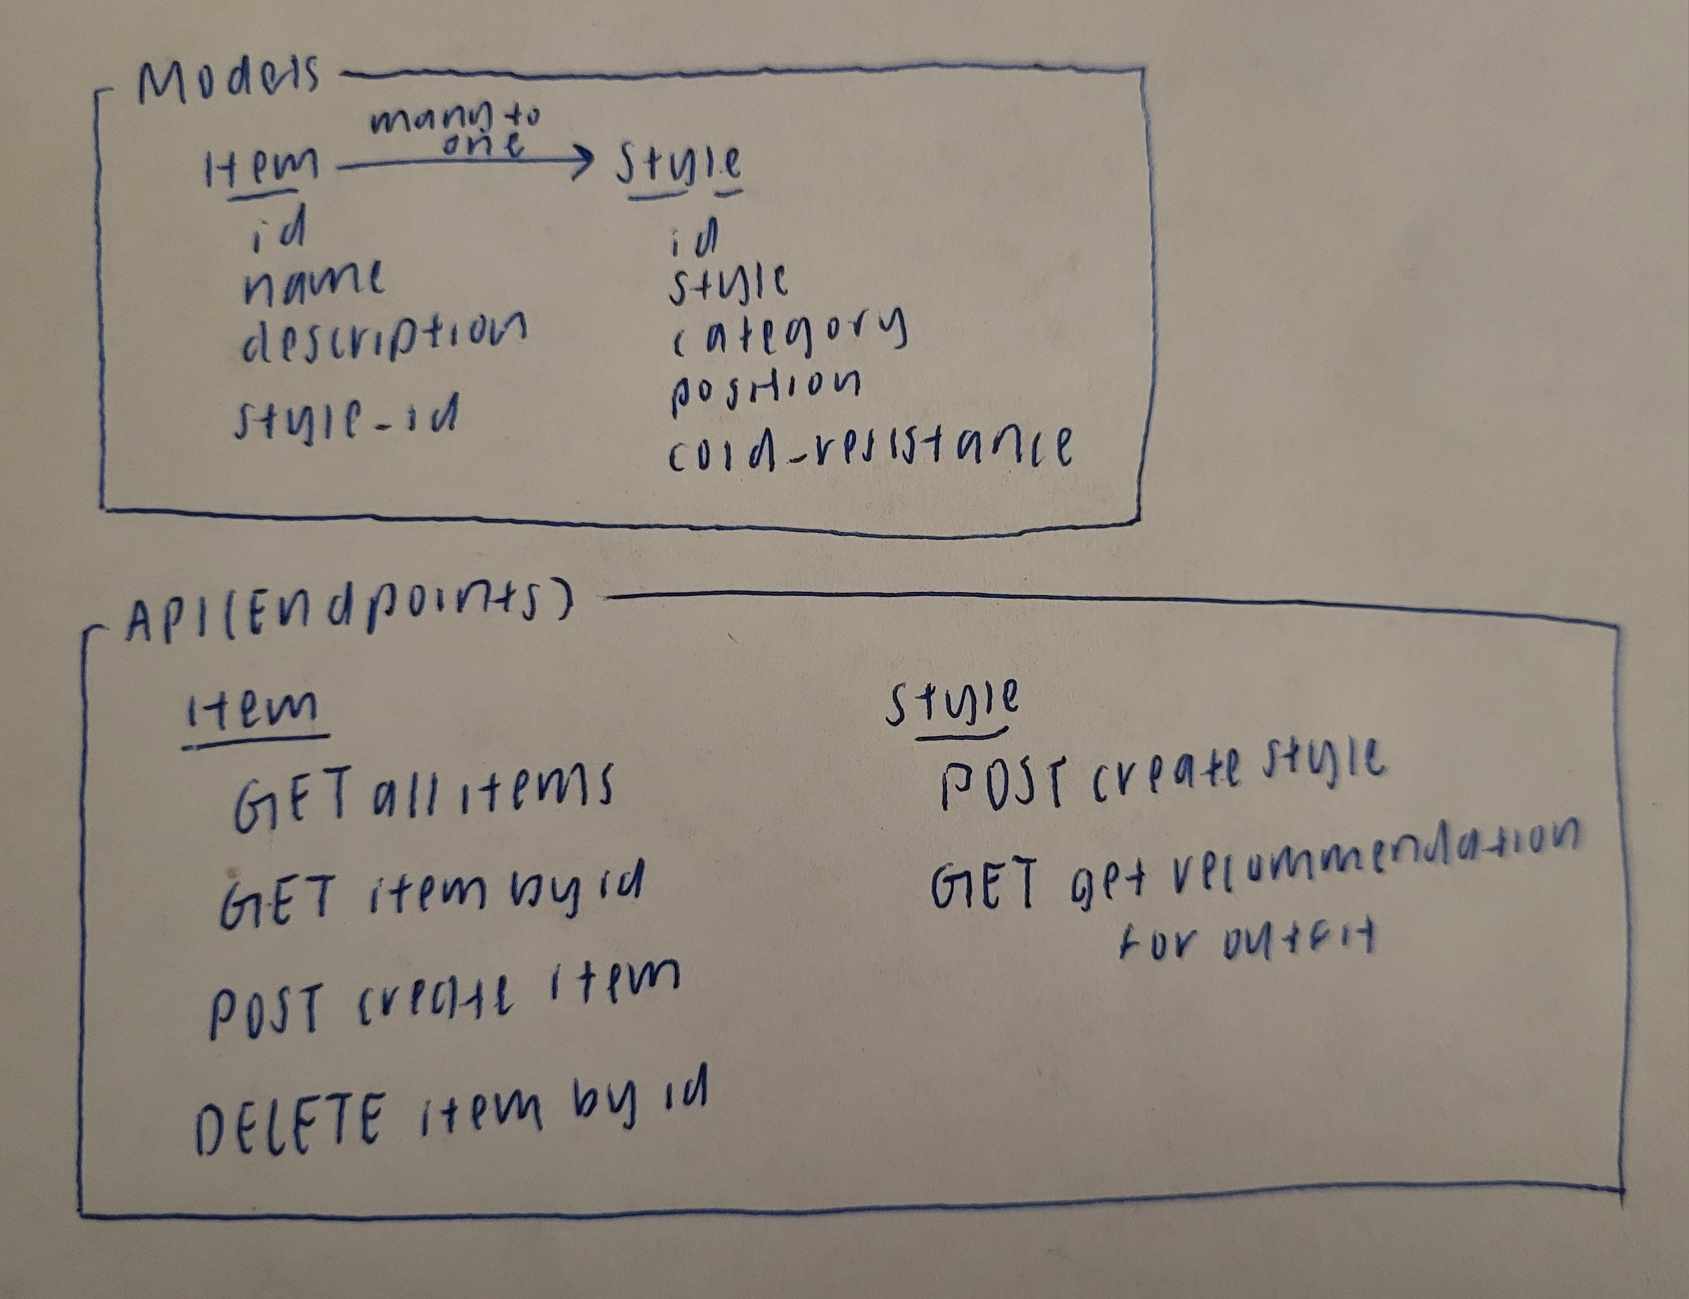 Models
many to
one
Item
style
id
name
description
style_id
id
style
category
position
cold_resistance
API(Endpoints)
item
GET all items
GET item by id
POST create item
DELETE item by id
style
POST create style
GET get recommendation
for outfit